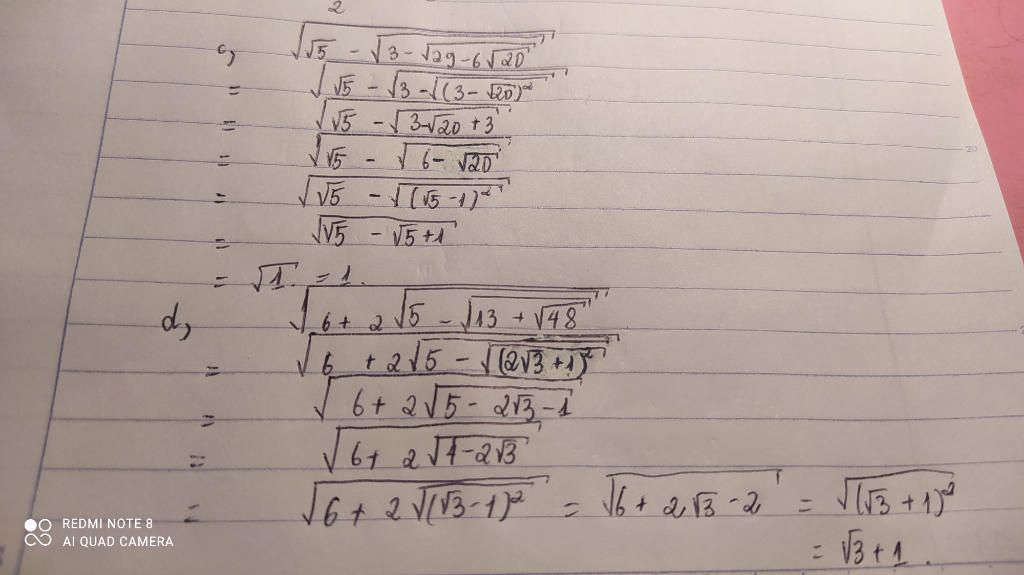 2
c, √(√5 - √(3 - √(29 - 6√20)))
= √(√5 - √(3 - √((3 - √20)²)))
= √(√5 - √(3 - √20 + 3))
= √(√5 - √(6 - √20))
= √(√5 - √((√5 - 1)²))
= √(√5 - √5 + 1)
= √1. = 1.
d, √(6 + 2√(5 - √(13 + √48)))
= √(6 + 2√(5 - √((2√3 + 1)²)))
= √(6 + 2√(5 - 2√3 - 1))
= √(6 + 2√(4 - 2√3))
= √(6 + 2√((√3 - 1)²)) = √(6 + 2√3 - 2) = √((√3 + 1)²)
= √3 + 1.
20
REDMI NOTE 8
AI QUAD CAMERA